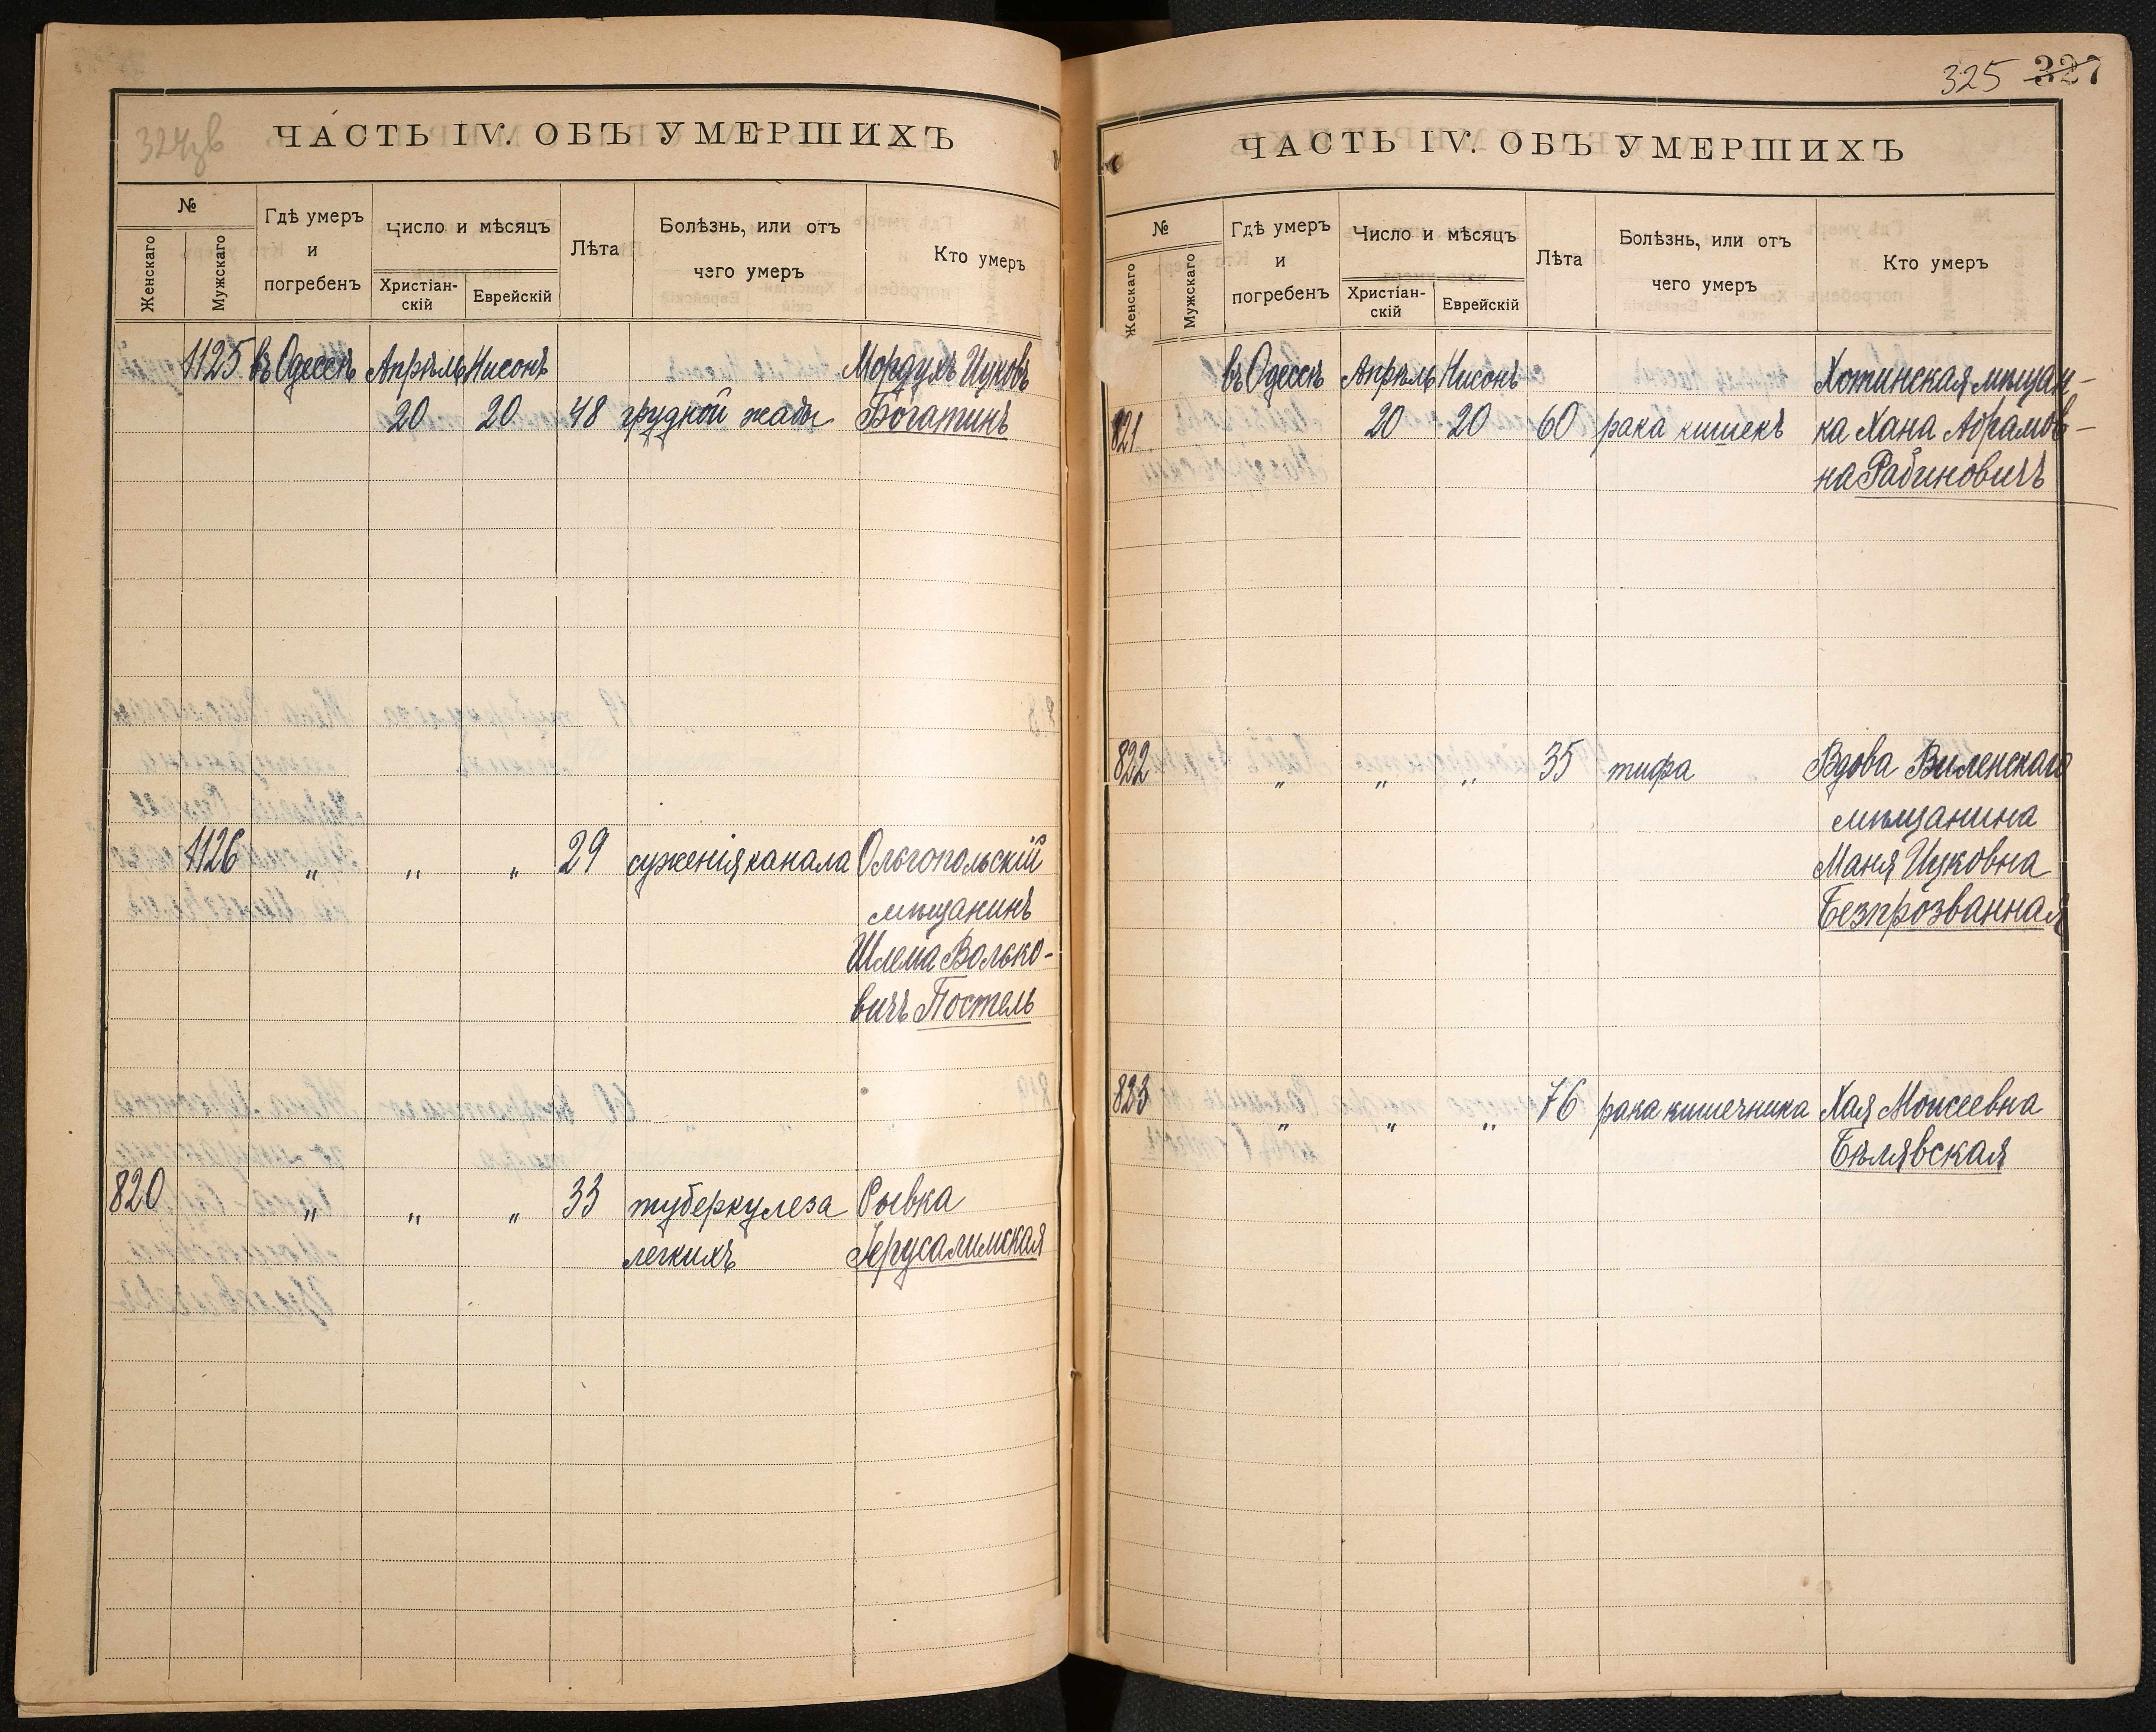 324зв
ЧАСТЬ IV. ОБЪ УМЕРШИХЪ
№
Женскаго
Мужскаго
Гдѣ умеръ
и
погребенъ
Число и мѣсяцъ
Христіан-
скій
Еврейскій
Лѣта
Болѣзнь, или отъ
чего умеръ
Кто умеръ
1125 въ Одессѣ Апрѣль Нисонъ Мордухъ Ицковъ
20 20 48 грудной жабы Богатинъ
1126 „ „ „ 29 суженія канала Ольгопольскій
мѣщанинъ
Шлема Волько-
вичъ Постель
820 „ „ „ 33 туберкулеза Рывка
легкихъ Іерусалимская
325 327
ЧАСТЬ IV. ОБЪ УМЕРШИХЪ
№
Женскаго
Мужскаго
Гдѣ умеръ
и
погребенъ
Число и мѣсяцъ
Христіан-
скій
Еврейскій
Лѣта
Болѣзнь, или отъ
чего умеръ
Кто умеръ
въ Одессѣ Апрѣль Нисонъ Хотинская мѣщан-
821 20 20 60 рака кишекъ ка Хана Абрамов-
на Рабиновичъ
822 „ „ „ 35 тифа Вдова Виленскаго
мѣщанина
Маня Ицковна
Безпрозванная
823 „ „ „ 76 рака кишечника Хая Моисеевна
Бѣлявская